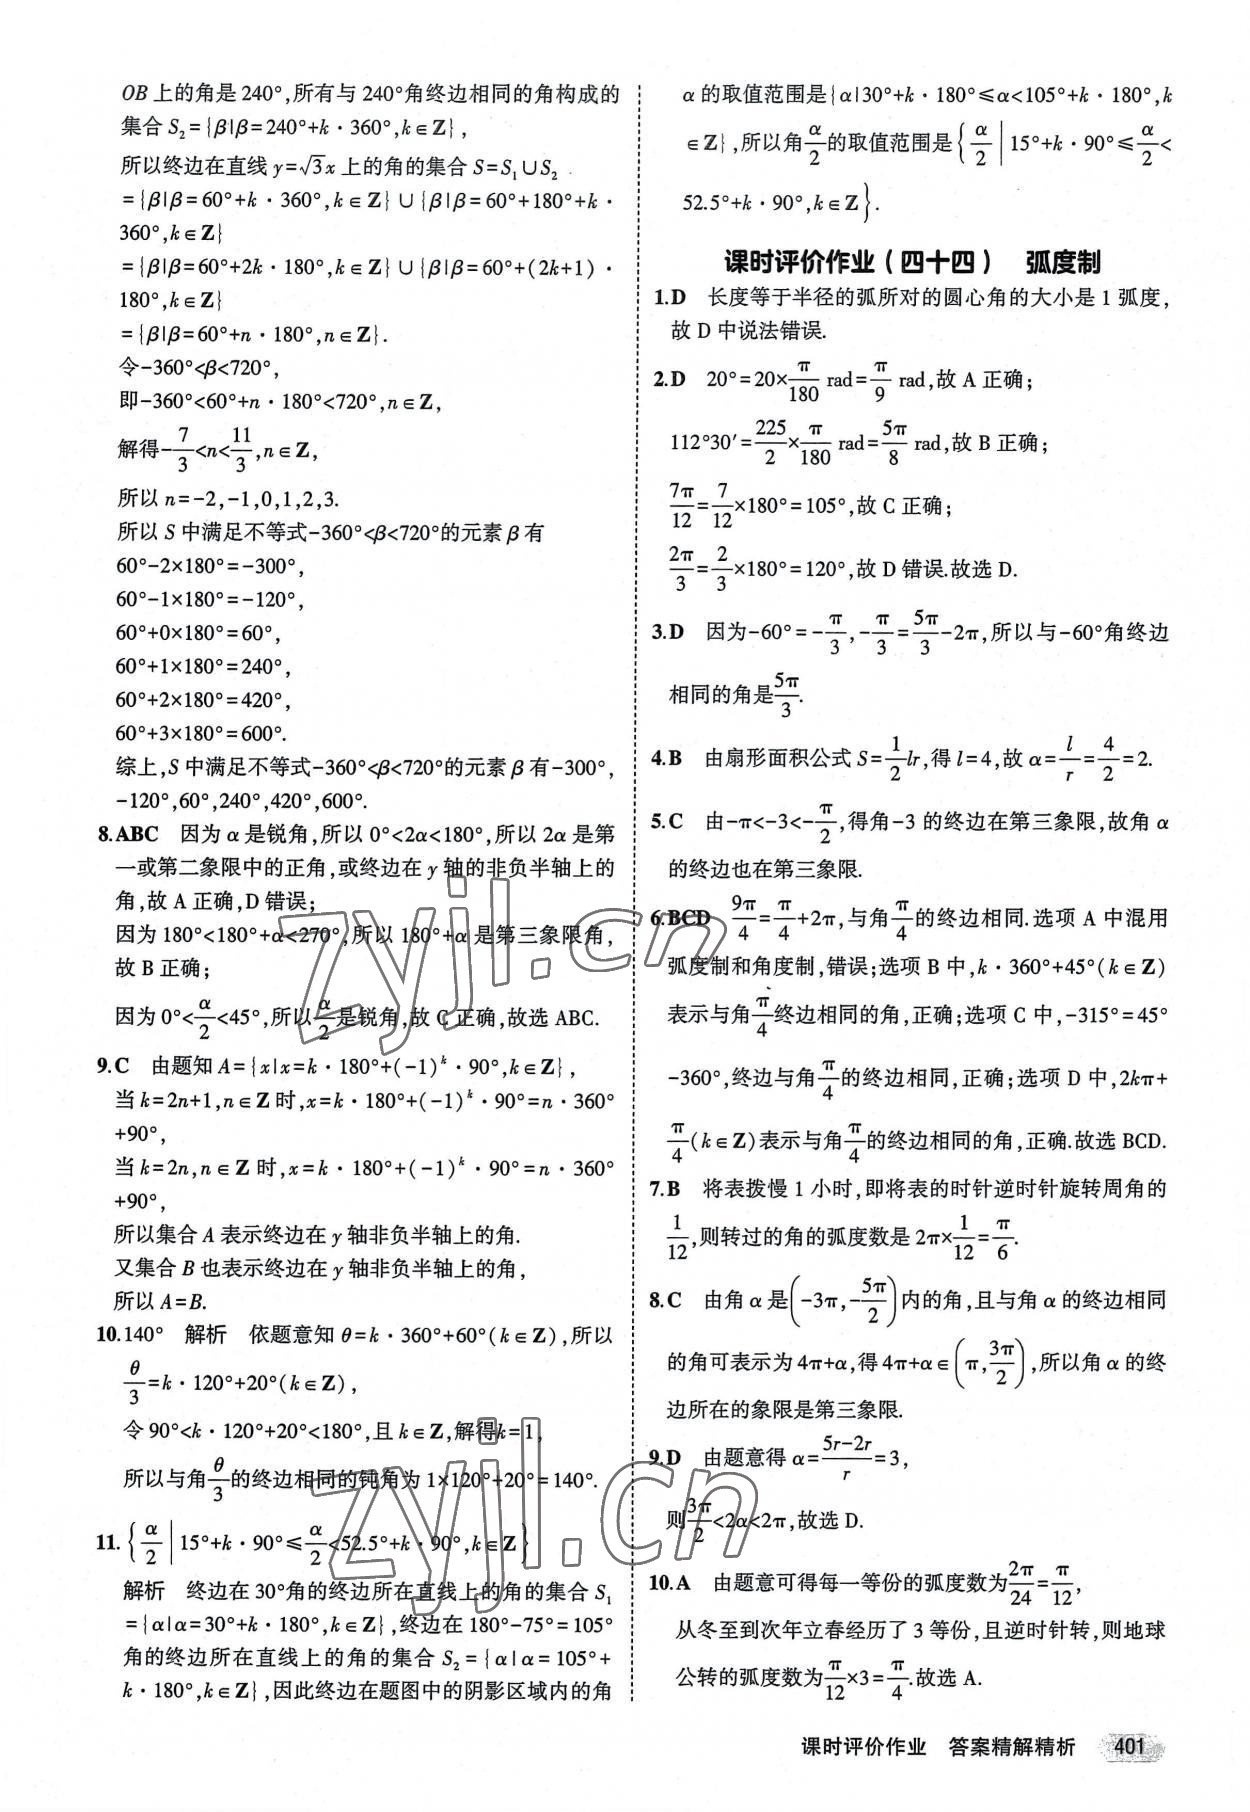 OB上的角是240°,所有与240°角终边相同的角构成的
集合S₂={β|β=240°+k·360°,k∈Z},
所以终边在直线y=√3x上的角的集合S=S₁∪S₂
={β|β=60°+k·360°,k∈Z}∪{β|β=60°+180°+k·
360°,k∈Z}
={β|β=60°+2k·180°,k∈Z}∪{β|β=60°+(2k+1)·
180°,k∈Z}
={β|β=60°+n·180°,n∈Z}.
令-360°<β<720°,
即-360°<60°+n·180°<720°,n∈Z,
解得-7/3<n<11/3,n∈Z,
所以n=-2,-1,0,1,2,3.
所以S中满足不等式-360°<β<720°的元素β有
60°-2×180°=-300°,
60°-1×180°=-120°,
60°+0×180°=60°,
60°+1×180°=240°,
60°+2×180°=420°,
60°+3×180°=600°.
综上,S中满足不等式-360°<β<720°的元素β有-300°,
-120°,60°,240°,420°,600°.
8.ABC 因为α是锐角,所以0°<2α<180°,所以2α是第
一或第二象限中的正角,或终边在y轴的非负半轴上的
角,故A正确,D错误;
因为180°<180°+α<270°,所以180°+α是第三象限角,
故B正确;
因为0°<α/2<45°,所以α/2是锐角,故C正确,故选ABC.
9.C 由题知A={x|x=k·180°+(-1)ᵏ·90°,k∈Z},
当k=2n+1,n∈Z时,x=k·180°+(-1)ᵏ·90°=n·360°
+90°,
当k=2n,n∈Z时,x=k·180°+(-1)ᵏ·90°=n·360°
+90°,
所以集合A表示终边在y轴非负半轴上的角.
又集合B也表示终边在y轴非负半轴上的角,
所以A=B.
10.140° 解析 依题意知θ=k·360°+60°(k∈Z),所以
θ/3=k·120°+20°(k∈Z),
令90°<k·120°+20°<180°,且k∈Z,解得k=1,
所以与角θ/3的终边相同的钝角为1×120°+20°=140°.
11.{α/2|15°+k·90°≤α/2<52.5°+k·90°,k∈Z}
解析 终边在30°角的终边所在直线上的角的集合S₁
={α|α=30°+k·180°,k∈Z},终边在180°-75°=105°
角的终边所在直线上的角的集合S₂={α|α=105°+
k·180°,k∈Z},因此终边在题图中的阴影区域内的角
α的取值范围是{α|30°+k·180°≤α<105°+k·180°,k
∈Z},所以角α/2的取值范围是{α/2|15°+k·90°≤α/2<
52.5°+k·90°,k∈Z}.
课时评价作业(四十四) 弧度制
1.D 长度等于半径的弧所对的圆心角的大小是1弧度,
故D中说法错误.
2.D 20°=20×π/180 rad=π/9 rad,故A正确;
112°30′=225/2×π/180 rad=5π/8 rad,故B正确;
7π/12=7/12×180°=105°,故C正确;
2π/3=2/3×180°=120°,故D错误.故选D.
3.D 因为-60°=-π/3,-π/3=5π/3-2π,所以与-60°角终边
相同的角是5π/3.
4.B 由扇形面积公式S=1/2lr,得l=4,故α=l/r=4/2=2.
5.C 由-π<-3<-π/2,得角-3的终边在第三象限,故角α
的终边也在第三象限.
6.BCD 9π/4=π/4+2π,与角π/4的终边相同.选项A中混用
弧度制和角度制,错误;选项B中,k·360°+45°(k∈Z)
表示与角π/4终边相同的角,正确;选项C中,-315°=45°
-360°,终边与角π/4的终边相同,正确;选项D中,2kπ+
π/4(k∈Z)表示与角π/4的终边相同的角,正确.故选BCD.
7.B 将表拨慢1小时,即将表的时针逆时针旋转周角的
1/12,则转过的角的弧度数是2π×1/12=π/6.
8.C 由角α是(-3π,-5π/2)内的角,且与角α的终边相同
的角可表示为4π+α,得4π+α∈(π,3π/2),所以角α的终
边所在的象限是第三象限.
9.D 由题意得α=(5r-2r)/r=3,
则3π/2<2α<2π,故选D.
10.A 由题意可得每一等份的弧度数为2π/24=π/12,
从冬至到次年立春经历了3等份,且逆时针转,则地球
公转的弧度数为π/12×3=π/4.故选A.
课时评价作业 答案精解精析 401
zyjl.cn
zyjl.cn